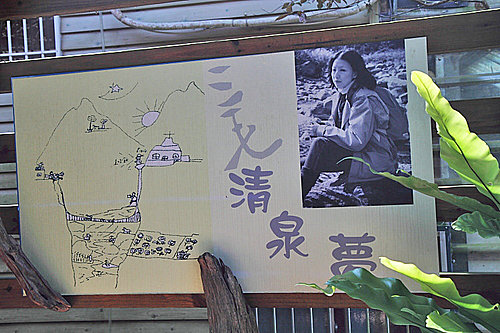 三毛
清
泉
夢